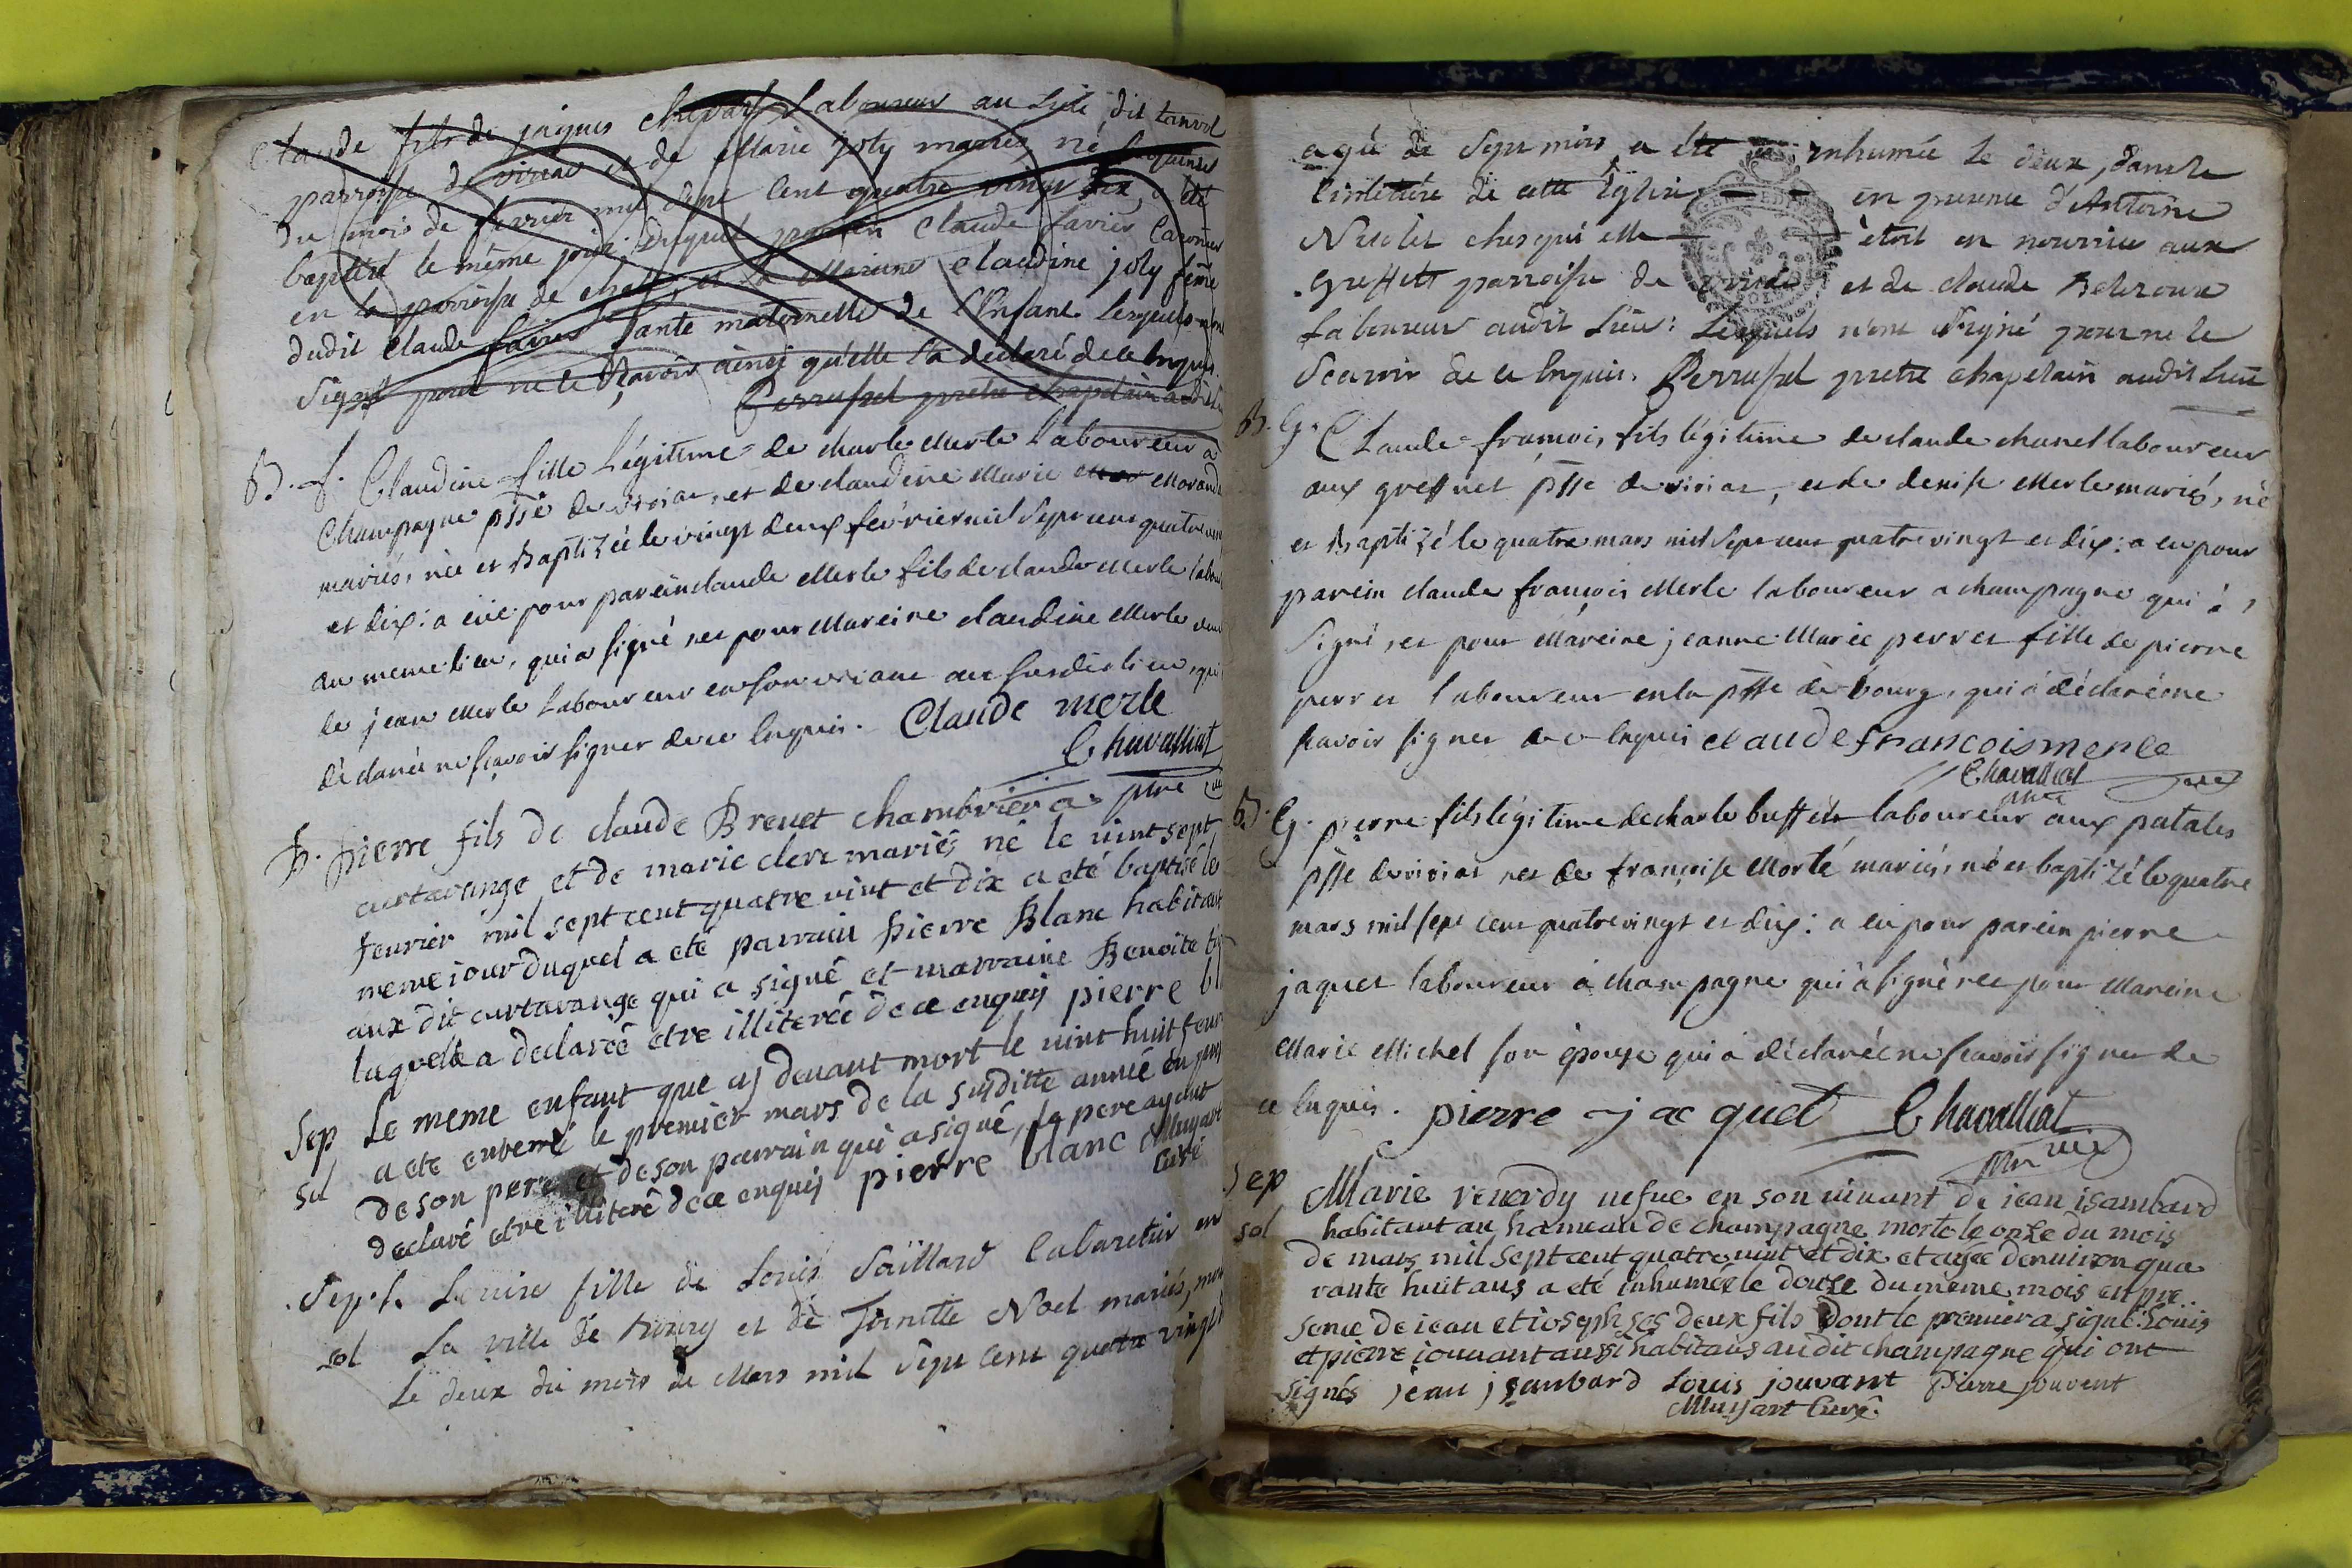 Claude fils de jâques Chevart Laboureur au Lieu dit tanvol
parroisse de viriat et de Marie joly mariés né
du mois de fevrier mil sept cent quatre vingt dix, a été
baptisé le même jour; duquel parrein Claude favier
en la parroisse de et la Mareine Claudine joly feme
dudit Claude favier tante maternelle de L'Enfant lesquels
signé pour ne le sçavoir ainsy qu'elle l'a déclaré de ce Enquis.
Perrussel pretre chapelain audit
B. f. Claudine fille Légitime de charle Merle Laboureur a
Champagne psse de viriat, et de claudine Marie Mar Morand
mariés, née et Baptizée le vingt deux février mil Sept cent quatre
et dix: a eüe pour parein claude Merle fils de claude Merle
au meme lieu, qui a signé, et pour Mareine claudine Merle
de jean Merle Laboureur en son vivant au susdit lieu, qui
déclarée ne sçavoir signer de ce Enquis. Claude merle
Chavalliat
ptre
B. pierre fils de claude Brevet chambrier a
curtavange et de marie clere mariés né le vint sept
fevrier mil sept cent quatre vint et dix a eté baptisé le
meme jour duquel a eté parrain pierre Blanc habitant
aux dit curtavange qui a signé et marraine Benoite
laquelle a declareé etre illitereé de ce enquis pierre
Sep Le meme enfant que cy devant mort le vint huit
sol a eté enterré le premier mars de la susditte année en
de son pere et de son parrain qui a signé, le pere ayant
declaré etre illiteré de ce enquis pierre blanc Muyart
Curé
Sep. f. Louise fille de Louis Saïllard Cabaretier en
sol La ville de Bourg et de Toinette Noel mariés,
le deux du mois de Mars mil Sept Cent quatre vingt
agée de Sept mois a été inhumée le deux, dans le
Cimetiere de cette Eglise en presence d'Antoine
Nicolet chés qui elle étoit en nourrice aux
greffets parroisse de viriat et de claude Beleroux
Laboureur audit Lieu: Lesquels n'ont signé pour ne le
Scavoir de ce Enquis. Perrussel pretre chapelain audit Lieu
B. G. Claude françois, fils légitime de claude chanel laboureur
aux greffets psse de viriat, et de denise Merle mariés, né
et Baptizé le quatre mars mil Sept cent quatre vingt et dix: a eu pour
parein claude françois Merle laboureur a champagne qui à
signé, et pour Mareine jeanne Marie perret fille de pierre
perret laboureur en la psse de bourg, qui a déclarée ne
scavoir signer de ce Enquis claude francois merle
Chavalliat
ptre
B. G. pierre fils légitime de charle buffet laboureur aux patales
psse de viriat, et de françoise Morté mariés, né et baptizé le quatre
mars mil sept cent quatre vingt et dix: a eu pour parein pierre
jaquet laboureur à champagne qui a signé, et pour Mareine
Marie Michel son épouse qui a déclarée ne scavoir signer de
ce Enquis. pierre jacquet Chavalliat
Sep Marie reverdy vefve en son vivant de jean isambard
sol habitant au hameau de champagne morte le onze du mois
de mars mil sept cent quatre vint et dix et agée denviron qua
rante huit ans a eté inhumée le douze du meme mois en pre..
sence de jean et joseph ses deux fils Dont le premier a signé. Louis
et pierre jouvant aussi habitans au dit champagne qui ont
signés jean jsambard Louis jouvant Pierre jouvent
Muyart Curé.